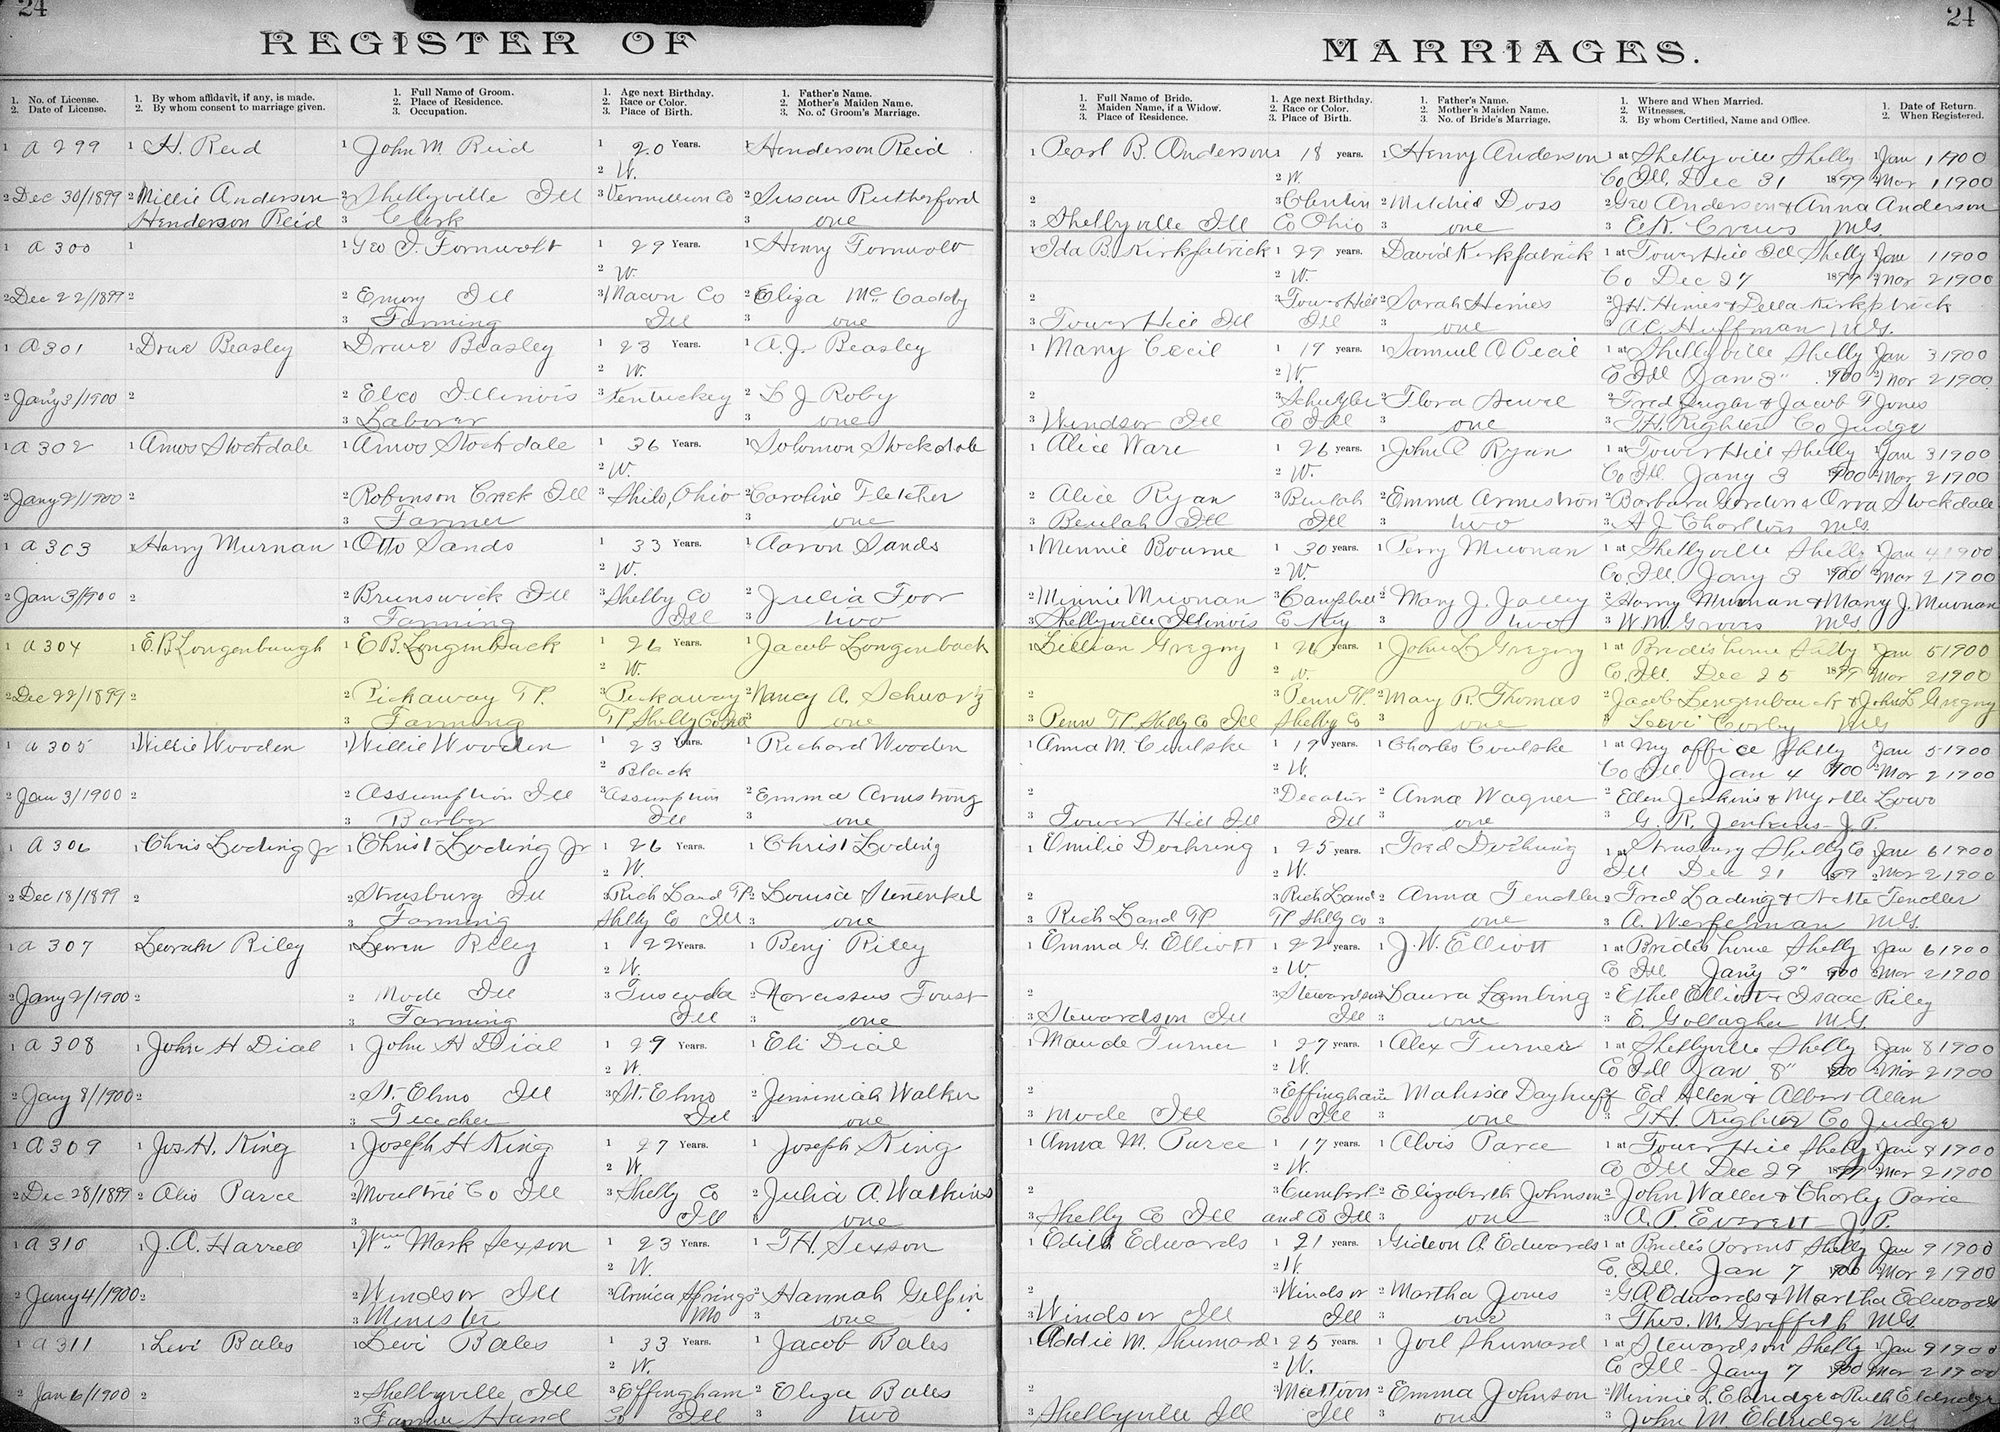 24
24
REGISTER OF MARRIAGES.
1. No. of License.
2. Date of License.
1. By whom affidavit, if any, is made.
2. By whom consent to marriage given.
1. Full Name of Groom.
2. Place of Residence.
3. Occupation.
1. Age next Birthday.
2. Race or Color.
3. Place of Birth.
1. Father's Name.
2. Mother's Maiden Name.
3. No. of Groom's Marriage.
1. Full Name of Bride.
2. Maiden Name, if a Widow.
3. Place of Residence.
1. Age next Birthday.
2. Race or Color.
3. Place of Birth.
1. Father's Name.
2. Mother's Maiden Name.
3. No. of Bride's Marriage.
1. Where and When Married.
2. Witnesses.
3. By whom Certified, Name and Office.
1. Date of Return.
2. When Registered.
1 A 299 1 H. Reid 1 John M. Reid 1 20 Years. 1 Henderson Reid 1 Pearl B. Anderson 1 18 years. 1 Henry Anderson 1 at Shelbyville Shelby 1 Jan 1 1900
2 W. 2 W. Co Ill. Dec 31 1899 2 Mar 1 1900
2 Dec 30/1899 2 Millie Anderson 2 Shelbyville Ill 3 Vermillion Co 2 Susan Rutherford 2 3 Clinton 2 Mildred Doss 2 Geo Anderson & Anna Anderson
Henderson Reid 3 Clerk 3 one 3 Shelbyville Ill Co Ohio 3 one 3 E.K. Crews M.G.
1 A 300 1 1 Geo I. Fornwolt 1 29 Years. 1 Henry Fornwolt 1 Ida B. Kirkpatrick 1 29 years. 1 David Kirkpatrick 1 at Tower Hill Ill Shelby 1 Jan 1 1900
2 W. 2 W. Co Dec 27 1899 2 Mar 2 1900
2 Dec 22/1899 2 2 Emory Ill 3 Macon Co 2 Eliza McCaddy 2 3 Tower Hill 2 Sarah Himes 2 J.H. Himes & Della Kirkptrick
3 Farming Ill 3 one 3 Tower Hill Ill Ill 3 one 3 A.C. Huffman M.G.
1 A 301 1 Drue Beasley 1 Drue Beasley 1 23 Years. 1 A.J. Beasley 1 Mary Cecil 1 19 years. 1 Samuel A Cecil 1 at Shelbyville Shelby 1 Jan 3 1900
2 W. 2 W. Co Ill Jan 3" 1900 2 Mar 2 1900
2 Jany 3/1900 2 2 Elco Illinois 3 Kentuckey 2 L J Roby 2 3 Schuyler 2 Flora 2 Fred & Jacob F Jones
3 Laborer 3 one 3 Windsor Ill Co Ill 3 one 3 T.H. Righter Co Judge
1 A 302 1 Amos Stockdale 1 Amos Stockdale 1 36 Years. 1 Solomon Stockdale 1 Alice Ware 1 26 years. 1 John C Ryan 1 at Tower Hill Shelby 1 Jan 3 1900
2 W. 2 W. Co Ill Jany 3 1900 2 Mar 2 1900
2 Jany 2/1900 2 2 Robinson Creek Ill 3 Shilo, Ohio 2 Caroline Fletcher 2 Alice Ryan 3 Beulah 2 Emma Armstron 2 Barbara Gordon & Orva Stockdale
3 Farmer 3 one 3 Beulah Ill Ill 3 two 3 A J Charlton M.G.
1 A 303 1 Harry Murnan 1 Otto Sands 1 33 Years. 1 Aaron Sands 1 Minnie Bourne 1 30 years. 1 Perry Murnan 1 at Shelbyville Shelby 1 Jan 4 1900
2 W. 2 W. Co. Ill. Jany 3 1900 2 Mar 2 1900
2 Jan 3/1900 2 2 Brunswick Ill 3 Shelby Co 2 Julia Foor 2 Minnie Murnan 3 Campbell 2 Mary J. Jolley 2 Harry Murnan & Mary J. Murnan
3 Farming Ill 3 two 3 Shelbyville Illinois Co Ky 3 two 3 W.M. Groves M.G.
1 A 304 1 E.B. Longenbaugh 1 E.B. Longenback 1 26 Years. 1 Jacob Longenback 1 Lillian Gregory 1 26 years. 1 John L Gregory 1 at Brides home Shelby 1 Jan 5 1900
2 W. 2 W. Co. Ill. Dec 25 1899 2 Mar 2 1900
2 Dec 22/1899 2 2 Pickaway TP. 3 Pickaway 2 Nancy A. Schwartz 2 3 Penn TP. 2 Mary R. Thomas 2 Jacob Longenback & John L Gregory
3 Farming TP Shelby Co Ill 3 one 3 Penn TP Shelby Co Ill Shelby Co 3 one 3 Levi Corby M.G.
1 A 305 1 Willie Wooden 1 Willie Wooden 1 23 Years. 1 Richard Wooden 1 Anna M. Coulske 1 19 years. 1 Charles Coulske 1 at My office Shelby 1 Jan 5 1900
2 Black 2 W. Co Ill Jan 4 1900 2 Mar 2 1900
2 Jan 3/1900 2 2 Assumption Ill 3 Assumption 2 Emma Armstrong 2 3 Decatur 2 Anna Wagner 2 Eden Jenkins & Myrtle Lowe
3 Barber Ill 3 one 3 Tower Hill Ill Ill 3 one 3 G. R. Jenkins J.P.
1 A 306 1 Chris Loding Jr 1 Christ Loding Jr 1 26 Years. 1 Christ Loding 1 Emilie Doehring 1 25 years. 1 Fred Doehring 1 at Strasburg Shelby Co 1 Jan 6 1900
2 W. 2 W. Ill Dec 21 1899 2 Mar 2 1900
2 Dec 18/1899 2 2 Strasburg Ill 3 Rich Land TP 2 Louisa Stenenkel 2 3 Rich Land 2 Anna Tendler 2 Fred Lading & Nette Tendler
3 Farming Shelby Co Ill 3 one 3 Rich Land TP TP Shelby Co 3 one 3 A. Werfelman M.G.
1 A 307 1 Leoran Riley 1 Loren Riley 1 22 Years. 1 Benj Riley 1 Emma G. Elliott 1 22 years. 1 J.W. Elliott 1 at Brides home Shelby 1 Jan 6 1900
2 W. 2 W. Co Ill Jany 3" 1900 2 Mar 2 1900
2 Jany 2/1900 2 2 Mode Ill 3 Tuscola 2 Narcissus Foust 2 3 Stewardson 2 Laura Lambing 2 Ethel Elliott & Isaac Riley
3 Farming Ill 3 one 3 Stewardson Ill Ill 3 one 3 E. Gollagher M.G.
1 A 308 1 John H Dial 1 John H Dial 1 29 Years. 1 Eli Dial 1 Maude Turner 1 27 years. 1 Alex Turner 1 at Shelbyville Shelby 1 Jan 8 1900
2 W. 2 W. Co Ill Jan 8" 1900 2 Mar 2 1900
2 Jany 8/1900 2 2 St. Elmo Ill 3 St. Elmo 2 Jemimiah Walker 2 3 Effingham 2 Malissa Dayhuff 2 Ed Allen & Albert Allen
3 Teacher Ill 3 one 3 Mode Ill Co Ill 3 one 3 T.H. Righter Co Judge
1 A 309 1 Jos. H. King 1 Joseph H King 1 27 Years. 1 Joseph King 1 Anna M. Parce 1 17 years. 1 Alvis Parce 1 at Tower Hill Shelby 1 Jan 8 1900
2 W. 2 W. Co Ill Dec 29 1899 2 Mar 2 1900
2 Dec 28/1899 2 Alvis Parce 2 Moultrie Co Ill 3 Shelby Co 2 Julia A. Watkins 2 3 Cumberl 2 Elizabeth Johnson 2 John Waller & Charley Parce
3 Ill 3 one 3 Shelby Co Ill and Co Ill 3 one 3 A. P. Everett J.P.
1 A 310 1 J. A. Harrell 1 Wm Mark Sexson 1 23 Years. 1 T.H. Sexson 1 Edith Edwards 1 21 years. 1 Gideon A. Edwards 1 at Brides Parent Shelby 1 Jan 9 1900
2 W. 2 W. Co. Ill. Jan 7 1900 2 Mar 2 1900
2 Jany 4/1900 2 2 Windsor Ill 3 Arnica Springs 2 Hannah Gilfin 2 3 Windsor 2 Martha Jones 2 G.A Edwards & Martha Edwards
3 Minister Mo 3 one 3 Windsor Ill Ill 3 one 3 Thos. M. Griffith M.G.
1 A 311 1 Levi Bales 1 Levi Bales 1 33 Years. 1 Jacob Bales 1 Addie M. Shumard 1 25 years. 1 Joel Shumard 1 at Stewardson Shelby 1 Jan 9 1900
2 W. 2 W. Co Ill - Jany 7 1900 2 Mar 2 1900
2 Jan 6/1900 2 2 Shelbyville Ill 3 Effingham 2 Eliza Bales 2 3 Mattoon 2 Emma Johnson 2 Minnie L. Eldridge & Ruth Eldridge
3 Farmer Hand Co Ill 3 two 3 Shelbyville Ill Ill 3 one 3 John M. Eldridge M.G.